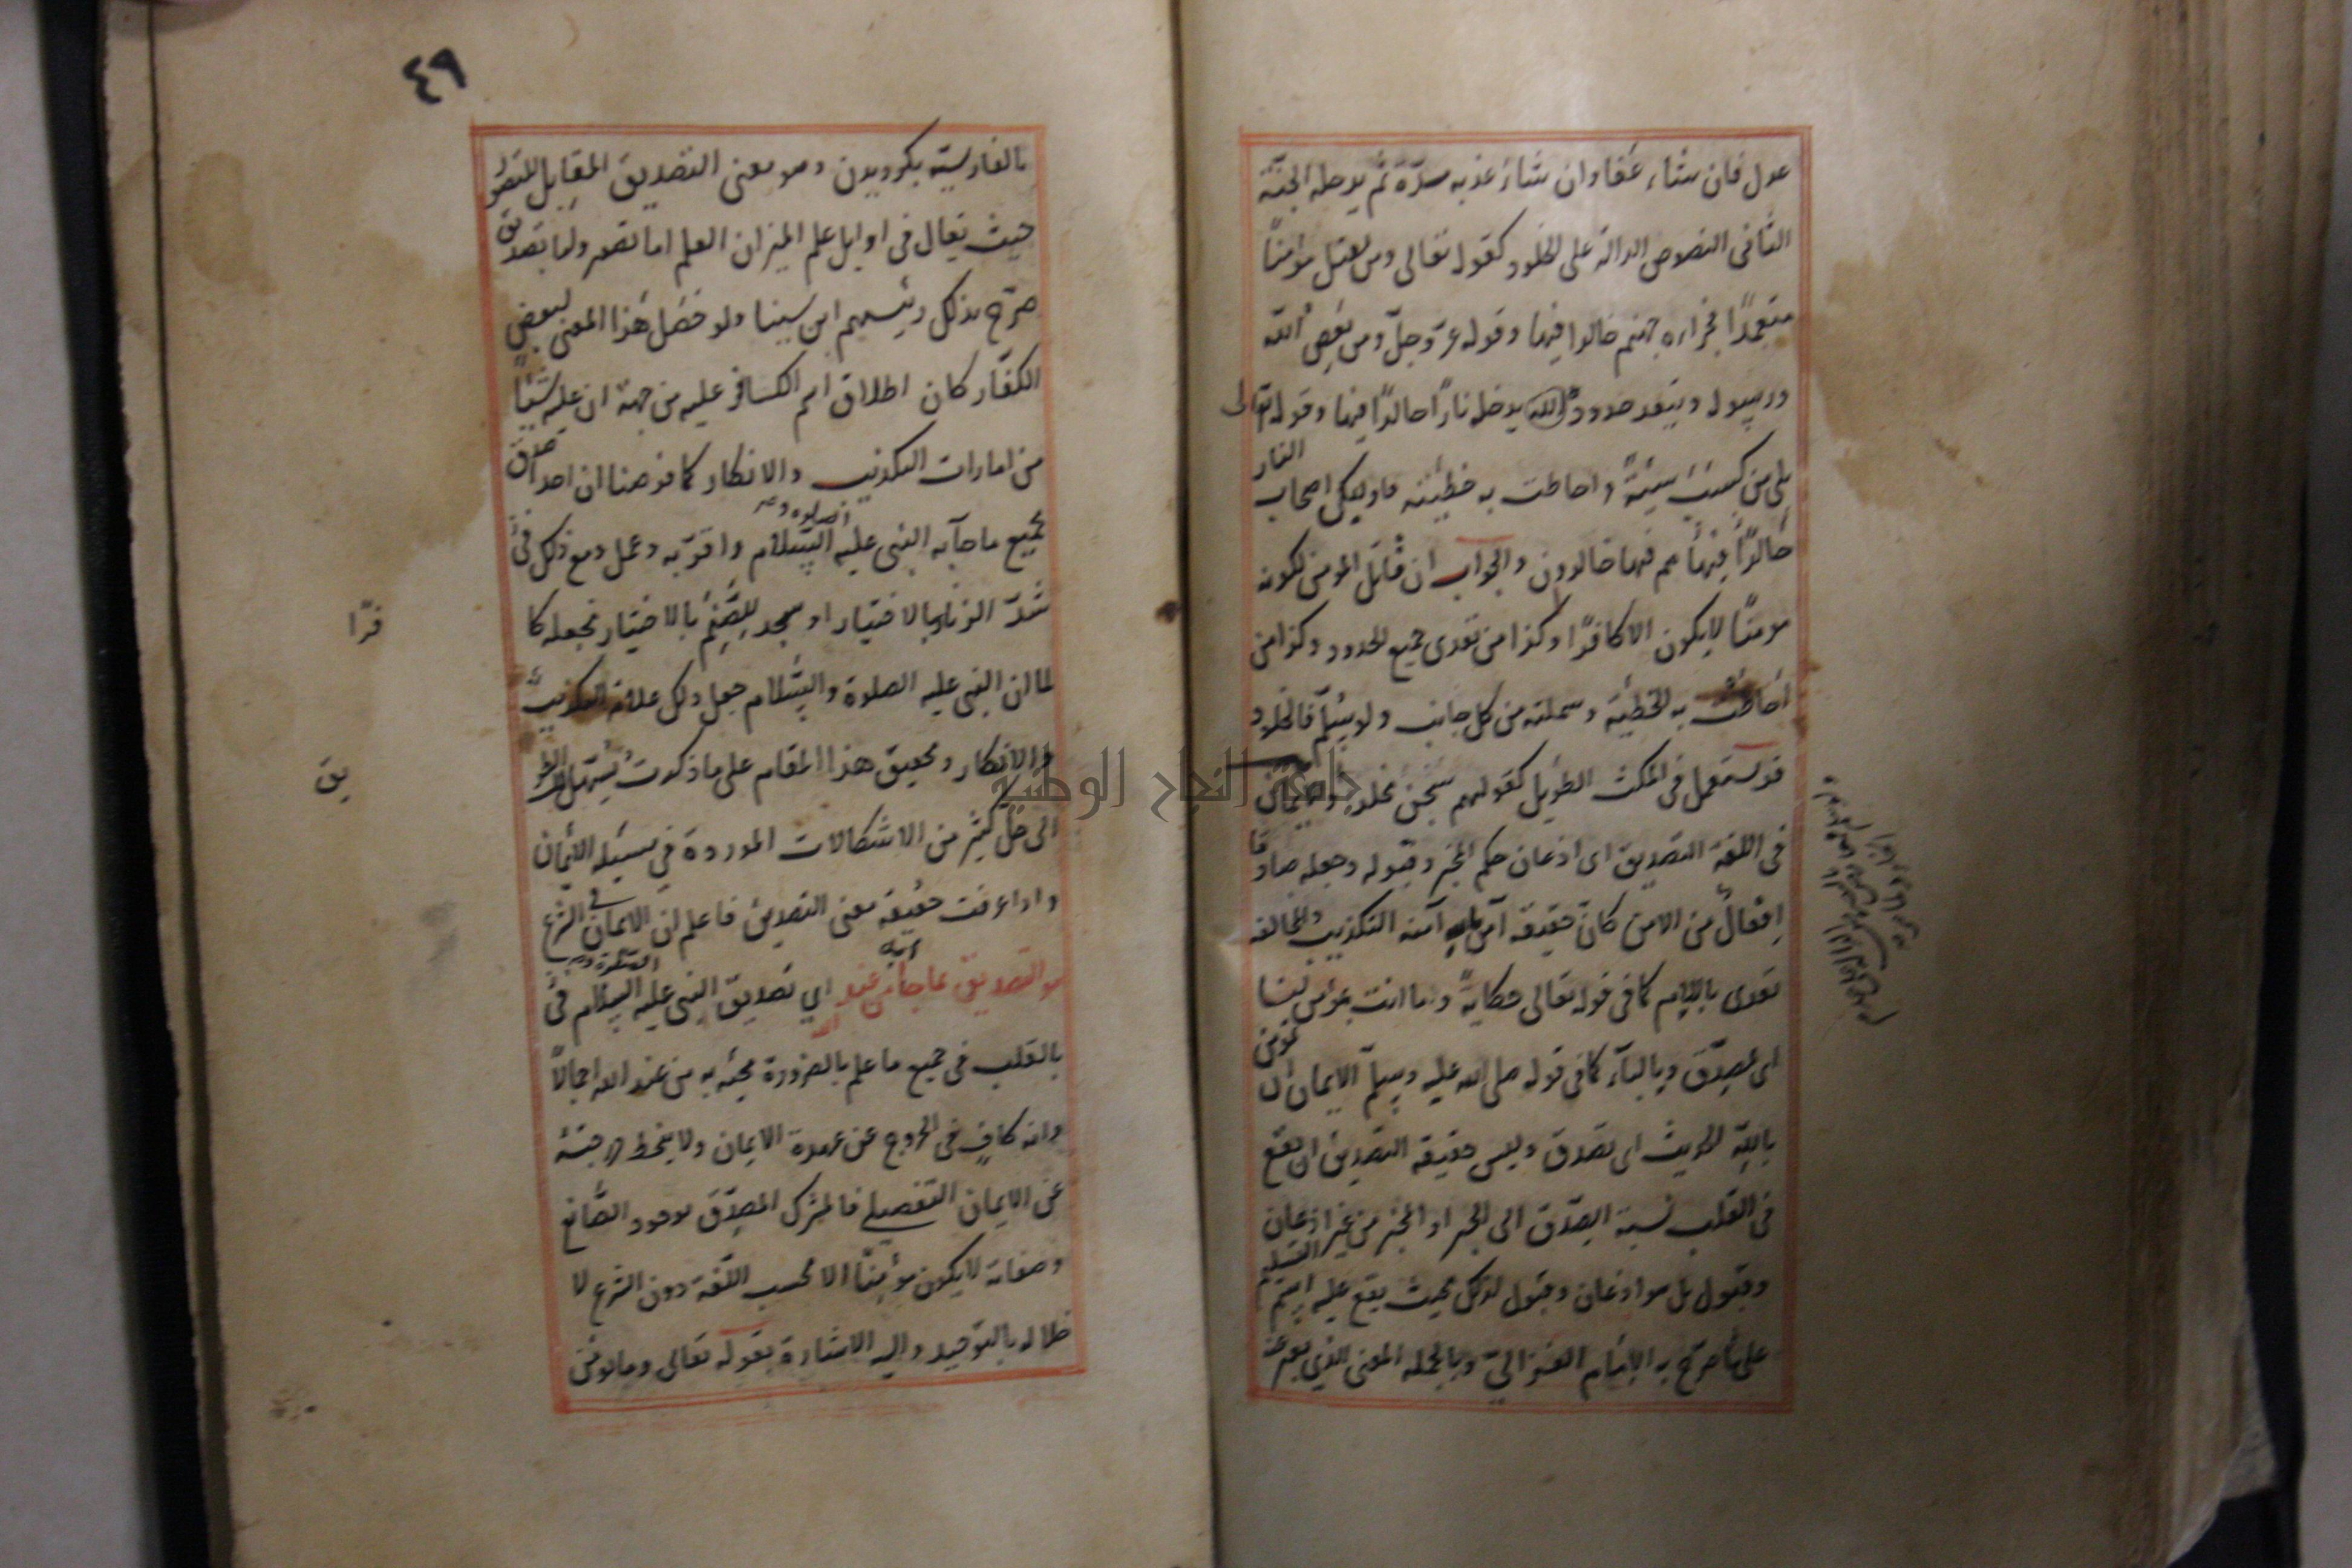 عدل فان شاء عفا وان شاء عذبه مدّة ثم يدخله الجنّة
الثانى النصوص الدالة على الخلود كقوله تعالى ومن يقتل مؤمنًا
متعمدًا فجزاءه جهنم خالدا فيها وقوله عزّ وجلّ ومن يعص اللّه
ورسوله ويتعد حدوده يدخله نارًا خالدًا فيها وقوله تعالى
بلى من كسب سيئةً واحاطت به خطيئته فاوليك اصحاب النار
خالدًا فيها هم فيها خالدون والجواب ان قاتل المومن لكونه
مومنًا لا يكون الا كافرًا وكذا من تعدى جميع الحدود وكذا من
احاطت به الخطيئة وشملته من كل جانب ولو سُلّم فالخلود
قد يستعمل فى المكث الطويل كقولهم سجن مخلد والايمان
فى اللغة التصديق اى اذعان حكم المخبر وقبوله وجعله صادقا
اِفعالٌ من الامن كانّ حقيقة آمن به آمنه التكذيب والمخالفه
تعدى باللام كما فى قوله تعالى حكايةً وما انت بمؤمن لنا
اى بمصدّق وبالباء كما فى قوله صلى الله عليه وسلّم الايمان ان تومن
باللّه الحديث اى تصدق وليس حقيقة التصديق ان يقع
فى القلب نسبة الصّدق الى الخبر او المخبر من غير اذعان
وقبول بل هو اذعان وقبول لذلك بحيث يقع عليه اسم التسليم
على ما صرّح به الامام الغزالىّ وبالجمله المعنى الذي يعبر عنه
٤٩
بالفارسيّه بكرويدن وهو معنى التصديق المقابل للتصور
حيث يقال فى اوايل علم الميزان العلم اما تصور واما تصديق
صرّح بذلك رئيسهم ابن سينا ولو حصل هذا المعنى لبعض
الكفّار كان اطلاق اسم الكافر عليه من جهة ان عليه شيئًا
من امارات التكذيب والانكار كما فرضنا ان احدا صدق
بجميع ما جاء به النبى عليه الصلوة والسّلام واقرّ به وعمل ومع ذلك
شدّ الزنار بالاختيار او سجد للصّنم بالاختيار نجعله كا
فرًا
لما ان النبى عليه الصلوة والسّلام جعل ذلك علامة التكذيب
والانكار وتحقيق هذا المقام على ما ذكرت يُسهل لك الطر
يق
الى حلّ كثير من الاشكالات الموردة في مسئله الايمان
واذا عرفت حقيقه معنى التصديق فاعلم ان الايمان فى الشرع
هو التصديق بما جاء من عند الله اى تصديق النبى عليه الصلوة والسلام
بالقلب فى جميع ما علم بالضرورة مجيئه به من عند الله اجمالاً
وانه كافٍ فى الخروج عن عهدة الايمان ولا ينحط درجته
عن الايمان التفصيلى فالمشرك المصدّق بوجود الصّانع
وصفاته لا يكون مؤمنًا الا بحسب اللّغة دون الشرع لا
خلاله بالتوحيد واليه الاشارة بقوله تعالى وما يومن
جامعة النجاح الوطنية